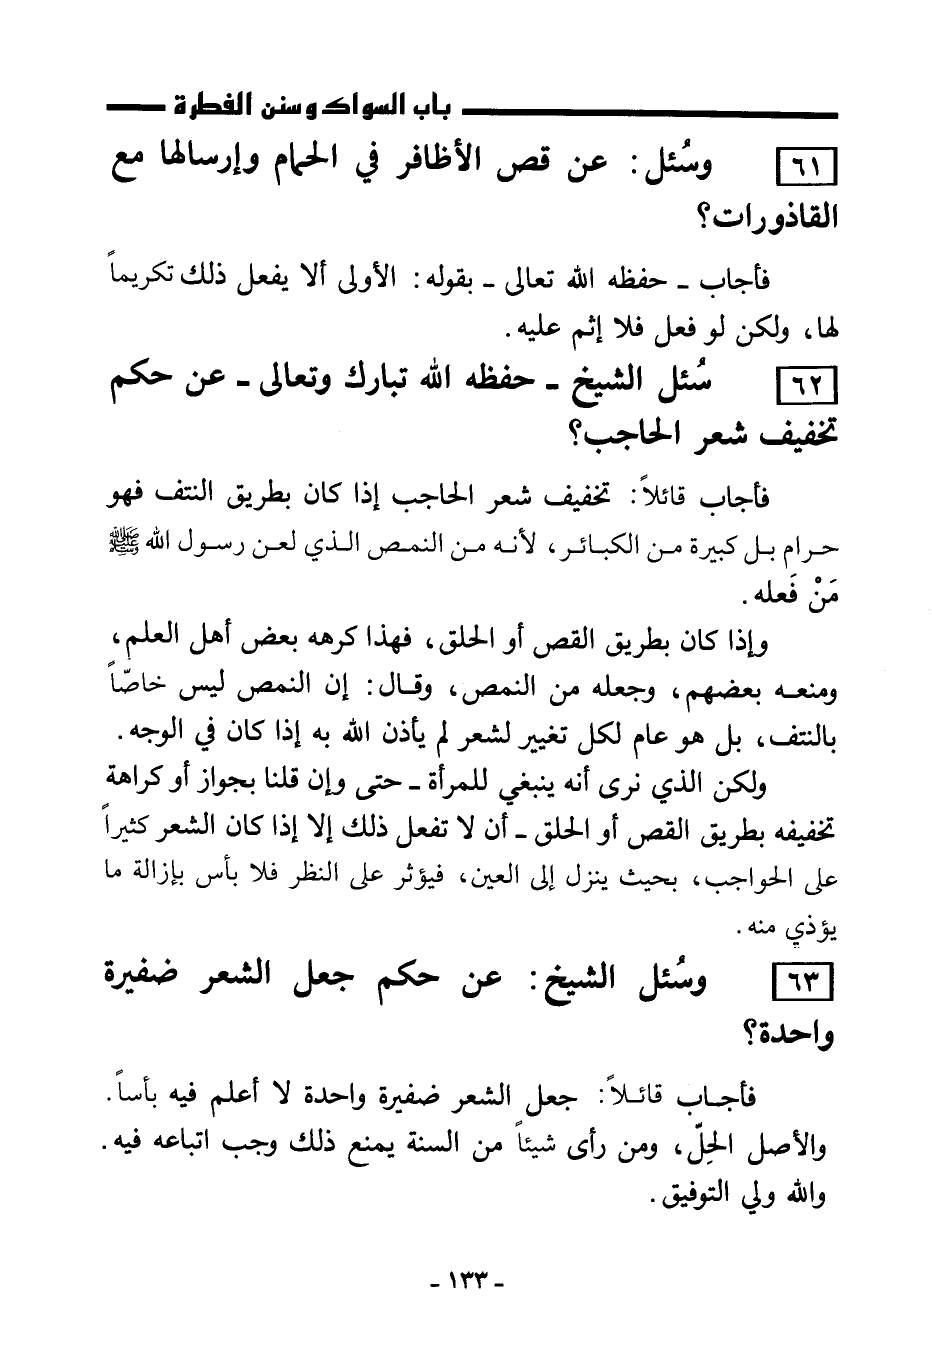 باب السواك وسنن الفطرة
٦١ وسُئل: عن قص الأظافر في الحمام وإرسالها مع
القاذورات؟
فأجاب - حفظه الله تعالى - بقوله: الأولى ألا يفعل ذلك تكريماً
لها، ولكن لو فعل فلا إثم عليه.
٦٢ سُئل الشيخ - حفظه الله تبارك وتعالى - عن حكم
تخفيف شعر الحاجب؟
فأجاب قائلاً: تخفيف شعر الحاجب إذا كان بطريق النتف فهو
حرام بل كبيرة من الكبائر، لأنه من النمص الذي لعن رسول الله ﷺ
مَنْ فَعله.
وإذا كان بطريق القص أو الحلق، فهذا كرهه بعض أهل العلم،
ومنعه بعضهم، وجعله من النمص، وقال: إن النمص ليس خاصّاً
بالنتف، بل هو عام لكل تغيير لشعر لم يأذن الله به إذا كان في الوجه.
ولكن الذي نرى أنه ينبغي للمرأة - حتى وإن قلنا بجواز أو كراهة
تخفيفه بطريق القص أو الحلق - أن لا تفعل ذلك إلا إذا كان الشعر كثيراً
على الحواجب، بحيث ينزل إلى العين، فيؤثر على النظر فلا بأس بإزالة ما
يؤذي منه.
٦٣ وسُئل الشيخ: عن حكم جعل الشعر ضفيرة
واحدة؟
فأجاب قائلاً: جعل الشعر ضفيرة واحدة لا أعلم فيه بأساً.
والأصل الحِلّ، ومن رأى شيئاً من السنة يمنع ذلك وجب اتباعه فيه.
والله ولي التوفيق.
- ١٣٣ -